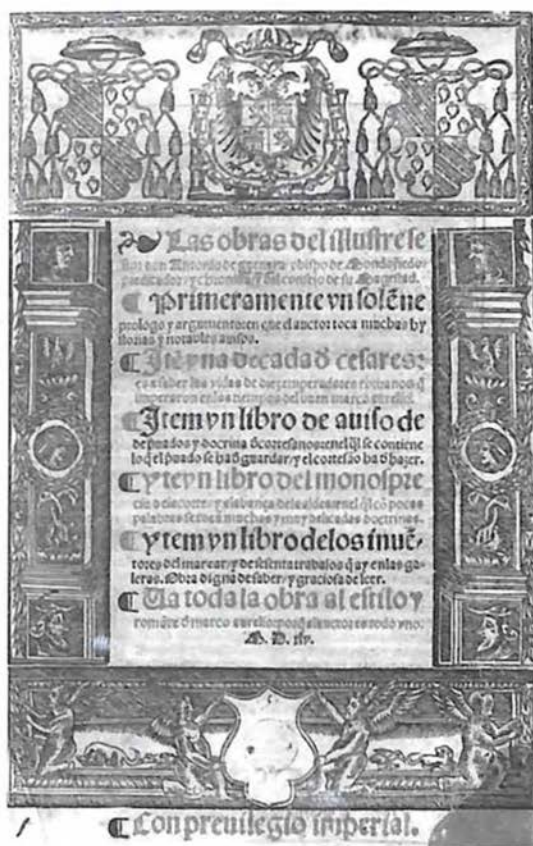 Las obras del illustre se
ñor don Antonio de gueuara obispo de Mondoñedo:
predicador / y chronista / y del consejo de su Magestad.
¶ Primeramente vn solẽne
prologo y argumento: en que el auctor toca muchas hy
storias y notables auisos.
¶ Itẽ vna decada ð cesares:
es a saber las vidas de diez emperadores romanos q̃
imperaron en los tiempos del buen marco aurelio.
¶ Item vn libro de auiso de
de puados y doctrina ð cortesanos: enel q̃l se contiene
lo q̃ el puado se ha ð guardar / y el cortesão ha ð hazer.
¶ yteȳ vn libro del menospre
cio de corte / y alabança de aldea: enel q̃l cõ pocas
palabras se tocã muchas y muy delicadas doctrinas.
¶ ytem vn libro delos inuẽ-
tores del marear / y de sesenta trabajos q̃ ay enlas ga-
leras. Obra digna de saber / y graciosa de leer.
¶ Ua toda la obra al estilo y
romãce ð marco aurelio: porq̃ el auctor es todo vno.
M. D. xlv.
¶ Con preuilegio imperial.